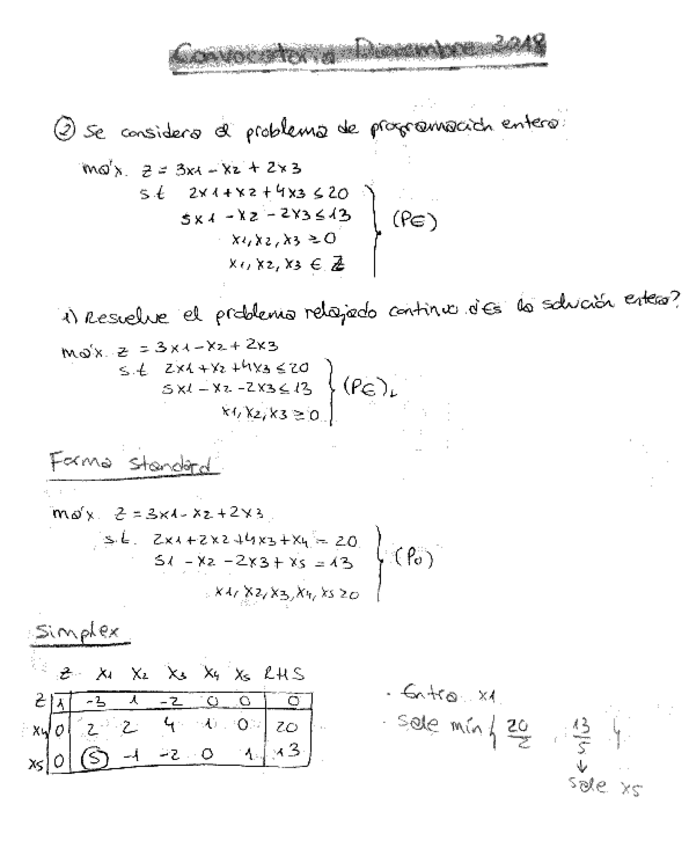 Convocatoria Diciembre 2018
② Se considera el problema de programación entera:
máx. z = 3x1 - x2 + 2x3
s.t 2x1 + x2 + 4x3 ≤ 20
5x1 - x2 - 2x3 ≤ 13
x1, x2, x3 ≥ 0
x1, x2, x3 ∈ Z
(PE)
1) Resuelve el problema relajado continuo. ¿Es la solución entera?
máx. z = 3x1 - x2 + 2x3
s.t 2x1 + x2 + 4x3 ≤ 20
5x1 - x2 - 2x3 ≤ 13
x1, x2, x3 ≥ 0
(PE)
Forma standard
máx. z = 3x1 - x2 + 2x3
s.t. 2x1 + 2x2 + 4x3 + x4 = 20
51 - x2 - 2x3 + x5 = 13
x1, x2, x3, x4, x5 ≥ 0
(P0)
Simplex
z x1 x2 x3 x4 x5 RHS
z 1 -3 1 -2 0 0 0
x4 0 2 2 4 1 0 20
x5 0 5 -1 -2 0 1 13
· Entra x1
· Sale mín { 20/2 , 13/5 }
↓
sale x5